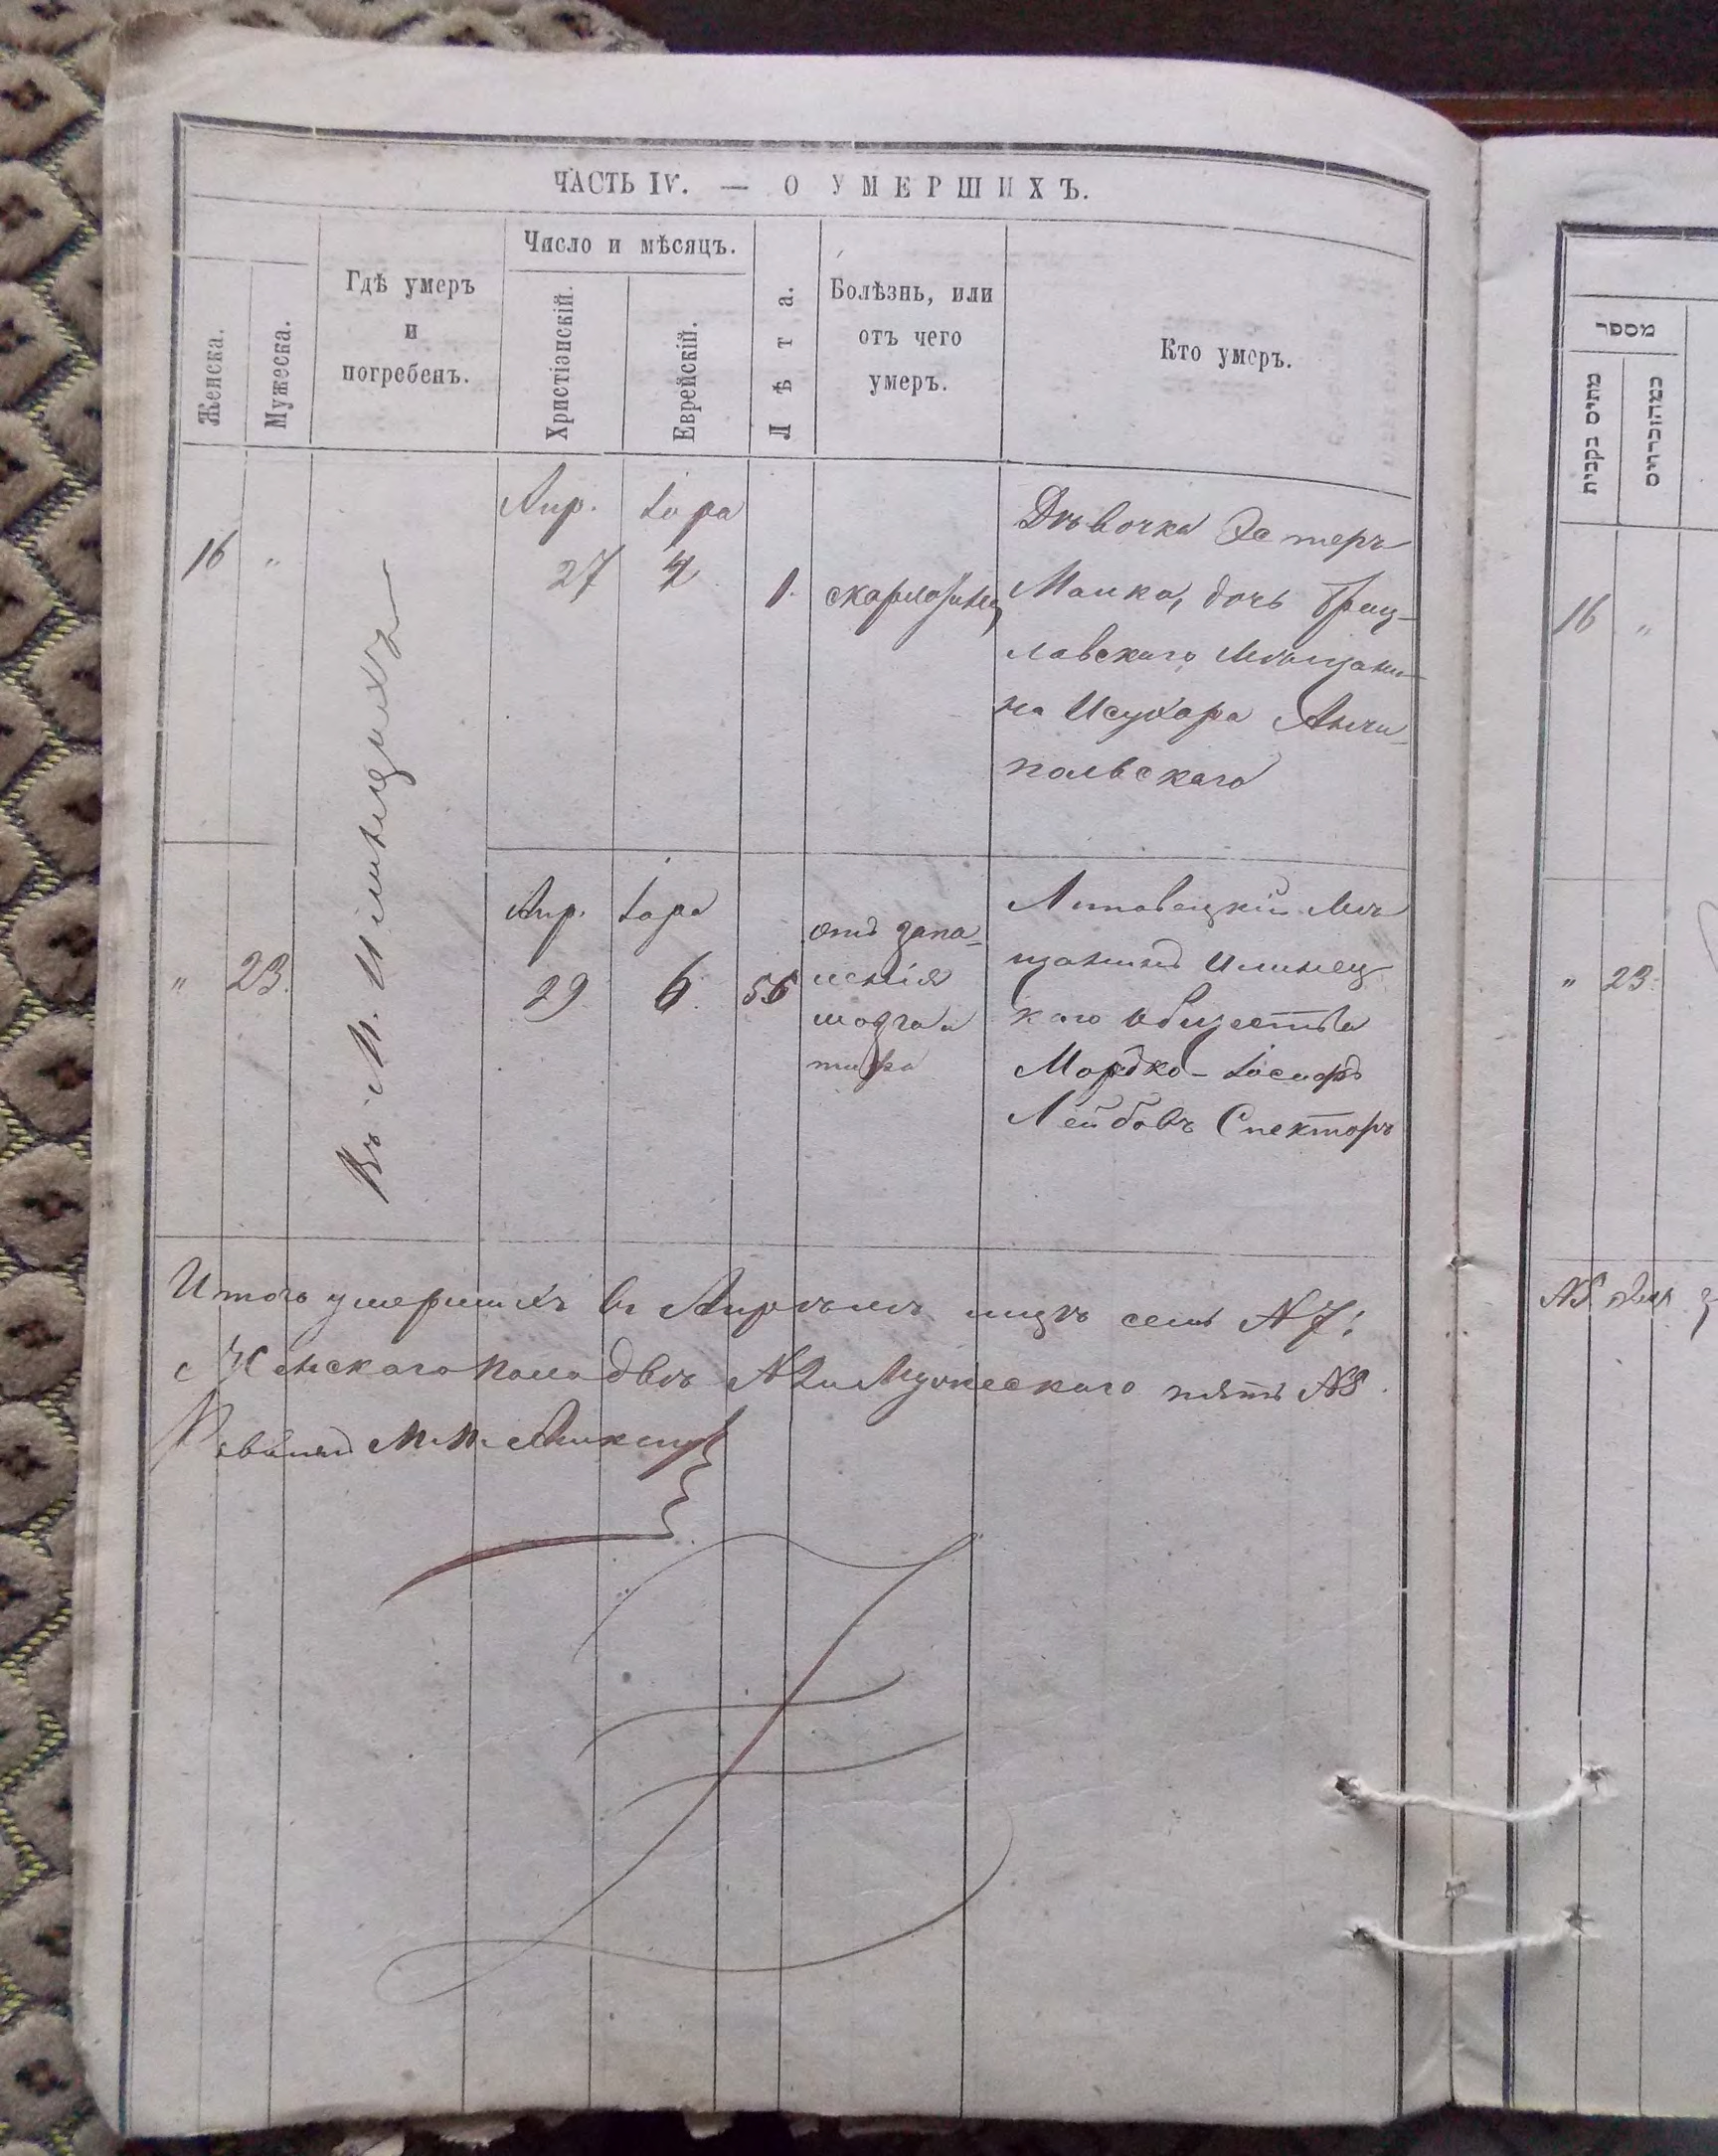 ЧАСТЬ IV. — О УМЕРШИХЪ.
Женска.
Мужеска.
Гдѣ умеръ
и
погребенъ.
Число и мѣсяцъ.
Христіанскій.
Еврейскій.
Лѣта.
Болѣзнь, или
отъ чего
умеръ.
Кто умеръ.
Въ М. Илинцихъ
16 "
Апр. Іора
27 4
1.
скарлатины
Дѣвочка Эстеръ
Малка, дочь Брац-
лавскаго Мѣщани-
на Исухара Анчи-
польскаго
" 23.
Апр. Іара
29 6
56
отъ запа-
ленія
мозга и
тифа
Литовецкій Мѣ
щанинъ Илинец
каго общества
Мордко-Іосифъ
Лейбовъ Спекторъ
Итого умершихъ въ Апрѣлѣ мцѣ семь №7:
Женскаго пола двѣ №2 и Мужескаго пять №5.
Раввинъ М. М.
מספר
נקבות
מהזכרים
16 "
" 23.